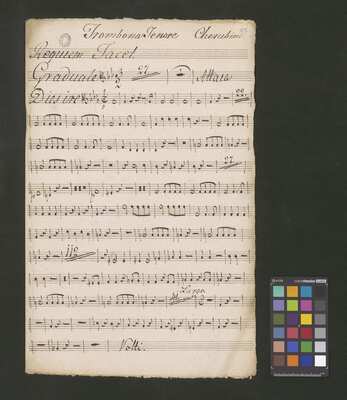 Trombona Tenore Cherubini
Requiem Tacet
Graduale 27 Attaca
Dies ire 22
27
110
Volti.